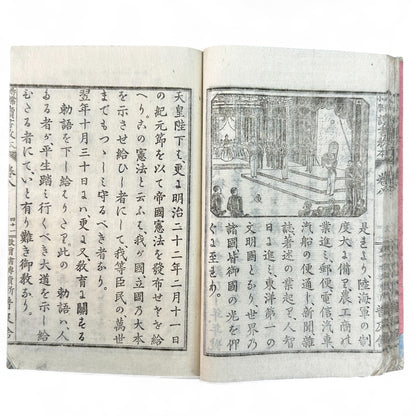 是より、陸海軍の制
度大に備り、農工商の
業進み、郵便、電信、汽車、
汽船の便通じ、新聞、雑
誌、著述の業起り、人智
日に進み、東洋第一の
文明國となり、世界の
諸國皆御國の光を仰
ぐに至れり。
天皇陛下は、更に明治二十二年二月十一日
の紀元節を以て帝國憲法を發布せさせ給
へり。この憲法と云ふは、我が國立國の大本
を示させ給ひし者にして、我等臣民の萬世
までもつつしみ守るべき者なり。
翌年十月三十日には、更に又教育に關する
勅語を下し給はりき。此の勅語は、人
たる者が平生踏み行くべき大道を示し給
はせる者にて、いと有り難き御教なり。